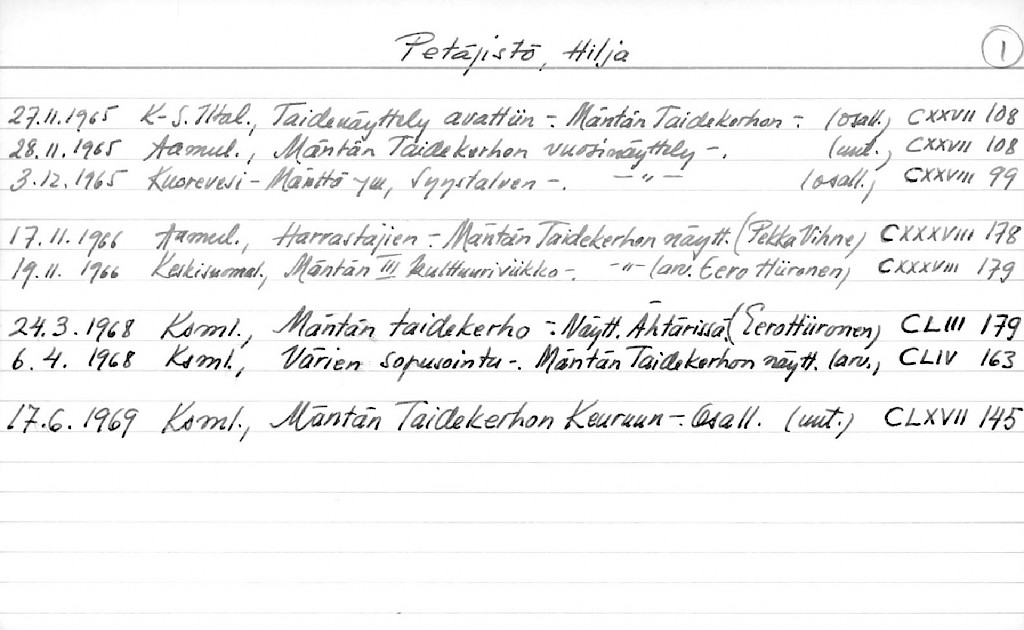 Petäjistö, Hilja 1
27.11.1965 K-S. Iltal., Taidenäyttely avattiin -. Mäntän Taidekerhon -. (osall.) CXXVII 108
28.11.1965 Aamul., Mäntän Taidekerhon vuosinäyttely -. (uut., CXXVII 108
3.12.1965 Kuorevesi - Mänttä - Syystalven -. -"- (osall., CXXVIII 99
17.11.1966 Aamul., Harrastajien -. Mäntän Taidekerhon näytt. (Pekka Vihne) CXXXVIII 178
19.11.1966 Keskisuomal., Mäntän III kulttuuriviikko -. -"- (arv. Eero Hiironen) CXXXVIII 179
24.3.1968 Ksml., Mäntän taidekerho -. Näytt. Ähtärissä. (Eero Hiironen) CLIII 179
6.4.1968 Ksml., Värien sopusointu -. Mäntän Taidekerhon näytt. (arv., CLIV 163
17.6.1969 Ksml., Mäntän Taidekerhon Keuruun -. Osall. (uut.) CLXVII 145